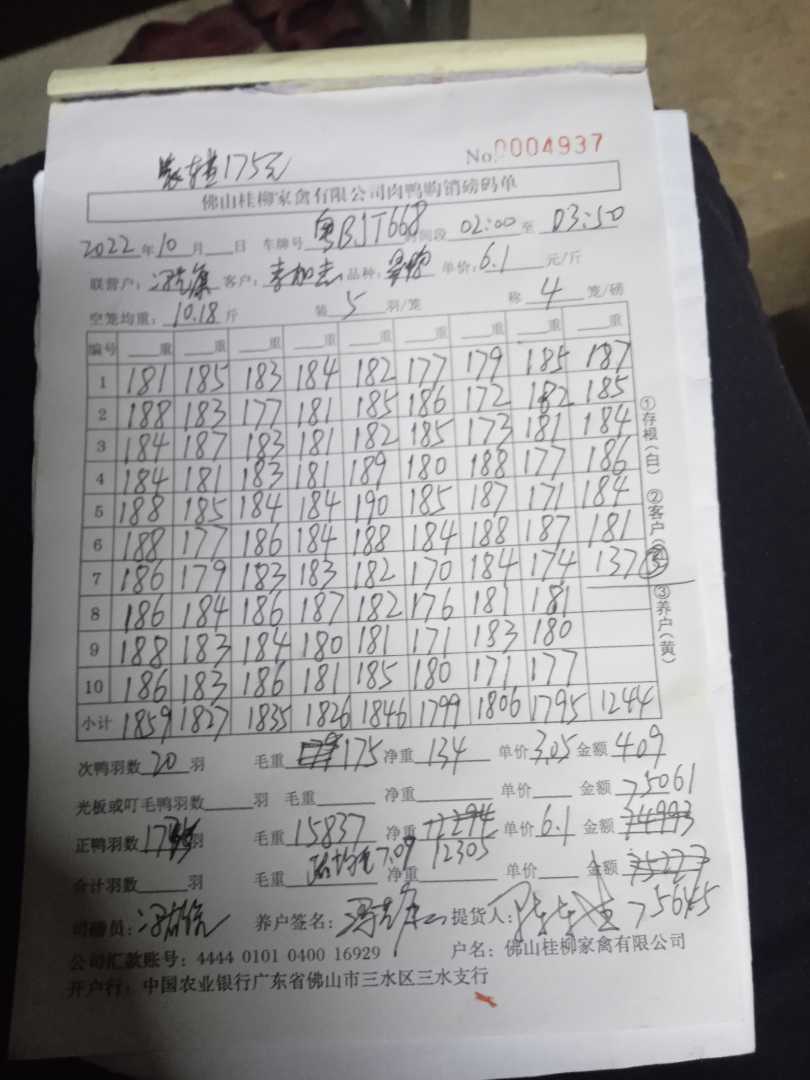 装挂175元
No.0004937
佛山桂柳家禽有限公司肉鸭购销磅码单
2022年10月 日 车牌号 粤BJT668 时间段 02:00 至 03:50
联营户: 客户: 李加志 品种: 单价: 6.1 元/斤
空笼均重: 10.18 斤 装 5 羽/笼 称 4 笼/磅
编号 重 重 重 重 重 重 重 重 重
1 181 185 183 184 182 177 179 185 187
2 188 183 177 181 185 186 172 182 185
3 184 187 183 181 182 185 173 181 184
4 184 181 183 181 189 180 188 177 186
5 188 185 184 184 190 185 187 171 184
6 188 177 186 184 188 184 188 187 181
7 186 179 183 183 182 170 184 174 137 ③
8 186 184 186 187 182 176 181 181
9 188 183 184 180 181 171 183 180
10 186 183 186 181 185 180 171 177
小计 1859 1827 1835 1826 1846 1799 1806 1795 1244
①存根(白) ②客户( ③养户(黄)
次鸭羽数 20 羽 毛重 175 净重 134 单价 3.05 金额 409
光板或叮毛鸭羽数 羽 毛重 净重 单价 金额 75061
正鸭羽数 羽 毛重 15837 净重 12294 单价 6.1 金额 74993
合计羽数 羽 毛重 7.09 净重 12305 单价 金额 75227
司磅员: 养户签名: 提货人: 75645
公司汇款账号: 4444 0101 0400 16929 户名: 佛山桂柳家禽有限公司
开户行: 中国农业银行广东省佛山市三水区三水支行